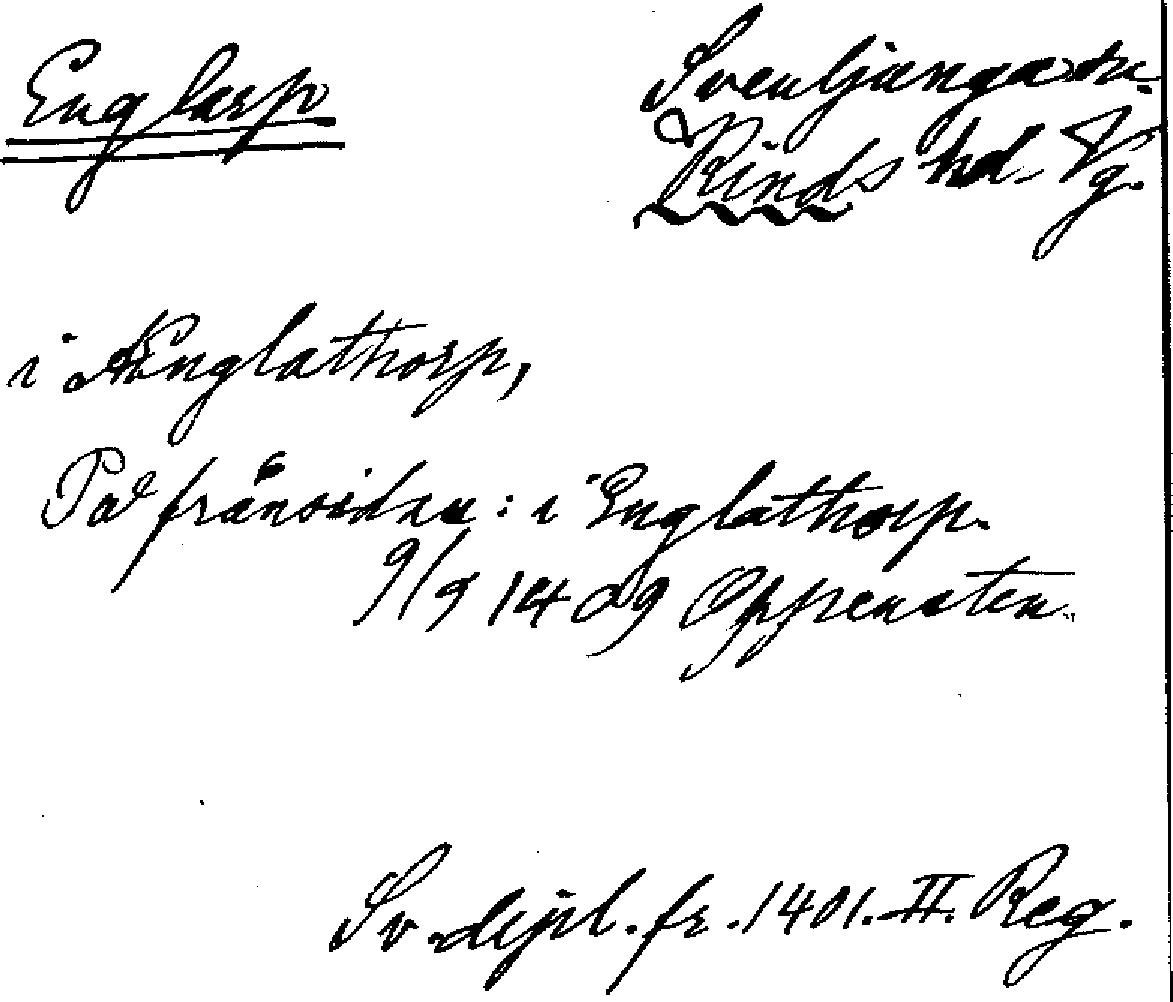 Englarp
Svenljunga sn.
Kinds hd. Vg.
i Ænglathorp,
På frånsidan: i Englathorp.
9/9 1409 Oppensten.
Sv. dipl. fr. 1401. II. Reg.